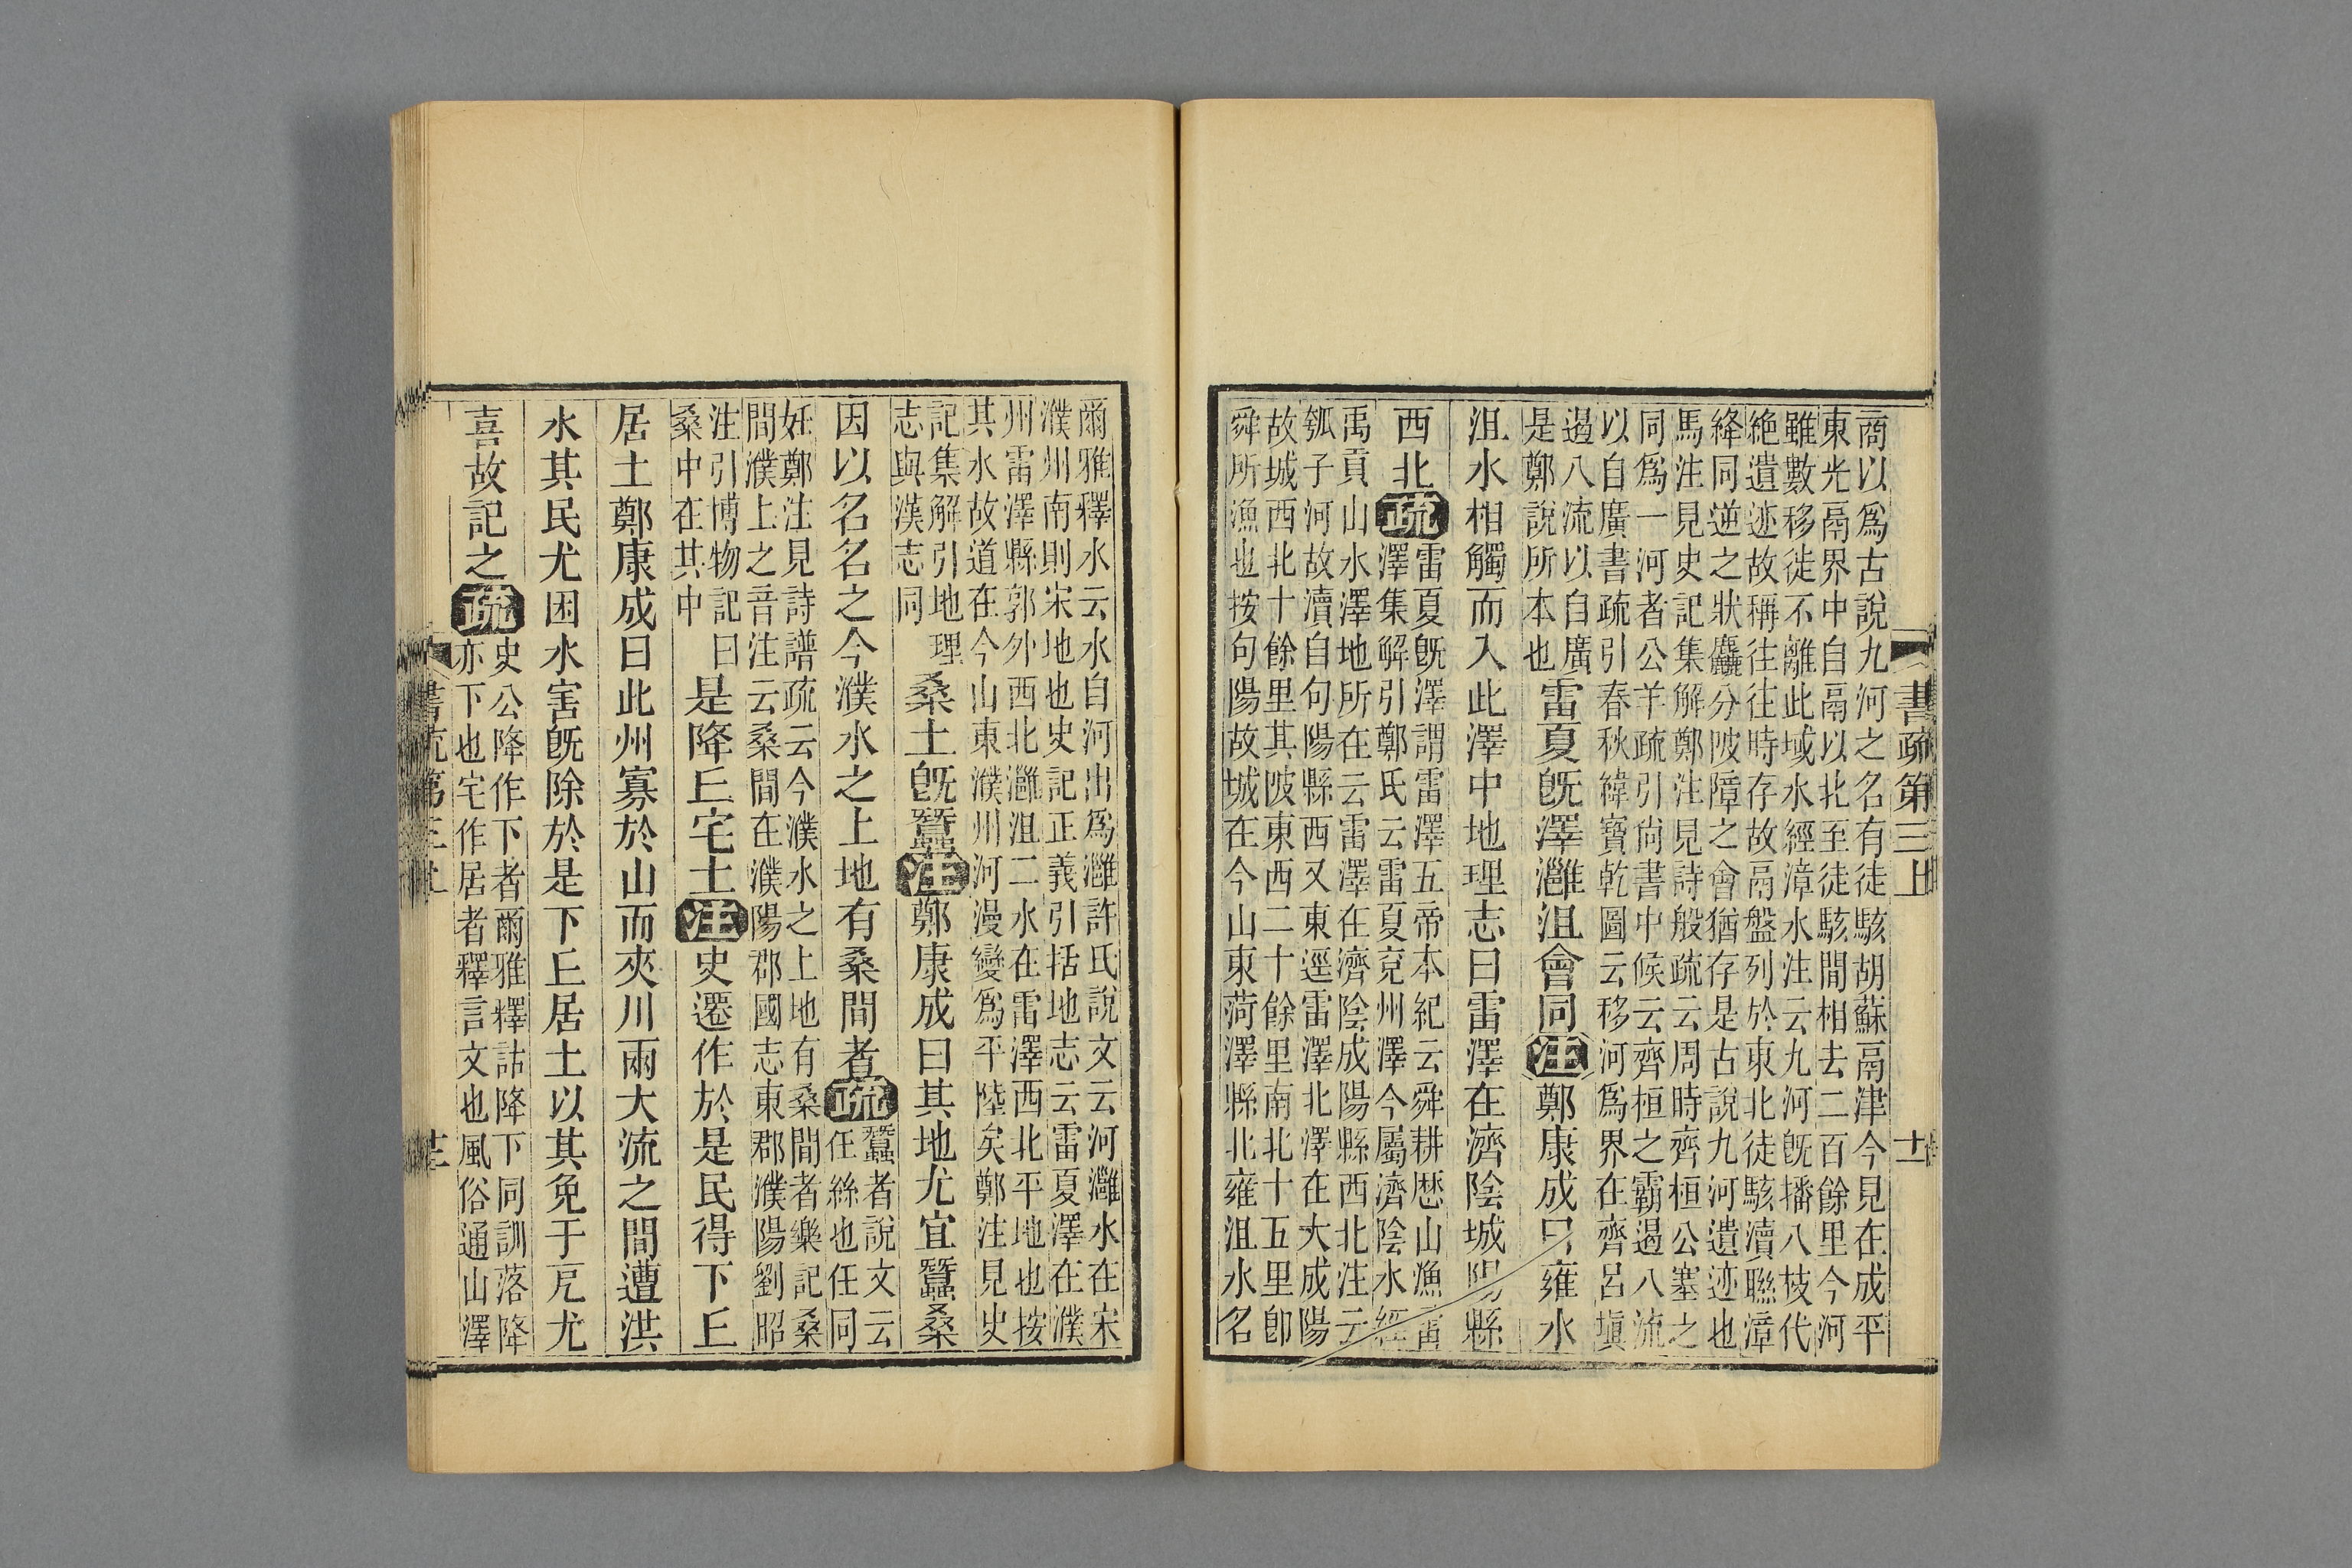 書疏第三上
十一
商以爲古說九河之名有徒駭胡蘇鬲津今見在成平
東光鬲界中自鬲以北至徒駭間相去二百餘里今河
雖數移徙不離此域水經漳水注云九河旣播八枝代
絶遺迹故稱往往時存故鬲盤列於東北徒駭瀆聯漳
絳同逆之狀麤分陂障之會猶存是古說九河遺迹也
馬注見史記集解鄭注見詩般疏云周時齊桓公塞之
同爲一河者公羊疏引尚書中候云齊桓之霸遏八流
以自廣書疏引春秋緯寶乾圖云移河爲界在齊呂塡
遏八流以自廣
是鄭說所本也
雷夏旣澤灉沮會同注鄭康成曰雍水
沮水相觸而入此澤中地理志曰雷澤在濟陰城陽縣
西北疏
雷夏旣澤謂雷澤五帝本紀云舜耕歷山漁雷
澤集解引鄭氏云雷夏兗州澤今屬濟陰水經
禹貢山水澤地所在云雷澤在濟陰成陽縣西北注云
瓠子河故瀆自句陽縣西又東逕雷澤北澤在大成陽
故城西北十餘里其陂東西二十餘里南北十五里卽
舜所漁也按句陽故城在今山東菏澤縣北雍沮水名
爾雅釋水云水自河出爲灉許氏說文云河灉水在宋
濮州南則宋地也史記正義引括地志云雷夏澤在濮
州雷澤縣郭外西北灉沮二水在雷澤西北平地也按
其水故道在今山東濮州河漫變爲平陸矣鄭注見史
記集解引地理
志與漢志同
桑土旣蠶注鄭康成曰其地尤宜蠶桑
因以名名之今濮水之上地有桑間者疏
蠶者說文云
任絲也任同
妊鄭注見詩譜疏云今濮水之上地有桑間者樂記桑
間濮上之音注云桑間在濮陽郡國志東郡濮陽劉昭
注引博物記曰
桑中在其中
是降丘宅土注史遷作於是民得下丘
居土鄭康成曰此州寡於山而夾川兩大流之間遭洪
水其民尤困水害旣除於是下丘居土以其免于厄尤
喜故記之疏
史公降作下者爾雅釋詁降下同訓落降
亦下也宅作居者釋言文也風俗通山澤